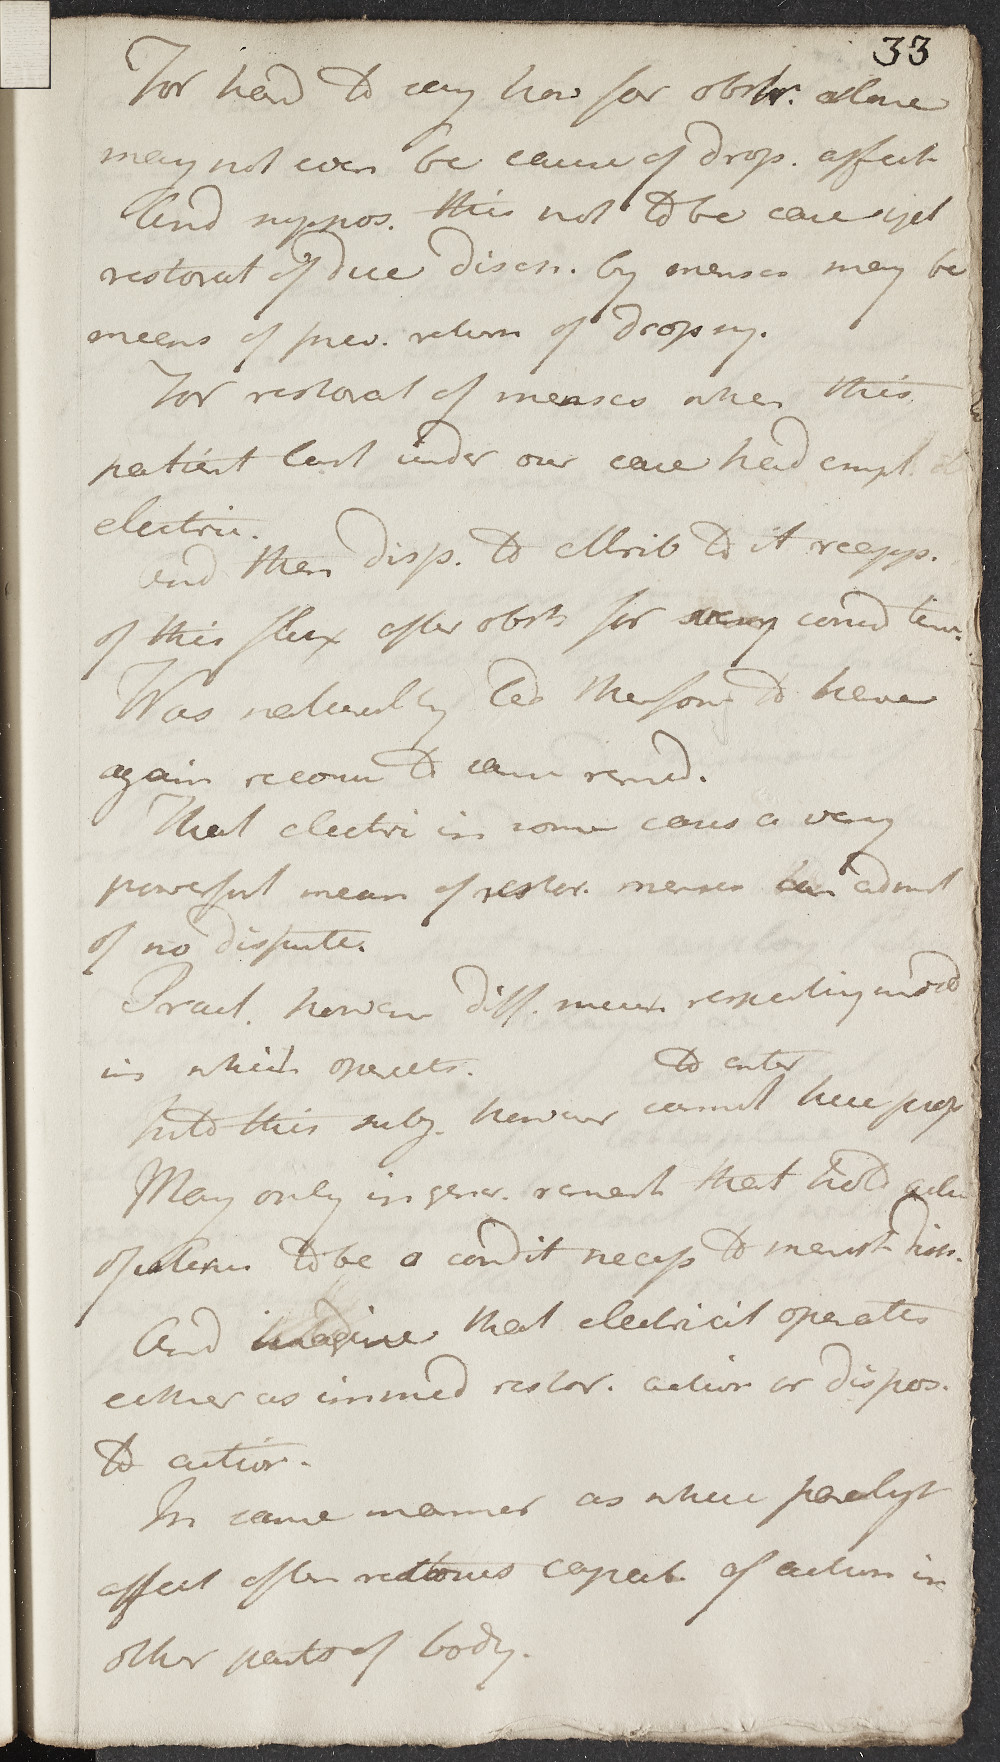 33
For hard to say how far obstr. alone
may not even be cause of drop. affect
And suppos. this not to be case yet
restorat of due disch. by menses may be
means of prev. return of dropsy.
For restorat of menses when this
patient last under our care had empl.
electric.
And then disp. to attrib to it reapp.
of this flux after obstr for very consid time.
Was naturally led therefore to have
again recour to same remed.
That electri in some cases a very
powerful mean of restor. menses can admit
of no dispute.
Pract. however diff. much respecting mod
in which operates.
to enter
Into this subj. however cannot here prop
May only in gener. remark that hold actio
of uterus to be a condit necess to menst. disch.
And imagine that electricit operates
either as immed restor. action or dispos.
to action.
In same manner as where paralyt
affect often restores capacit. of action in
other parts of body.